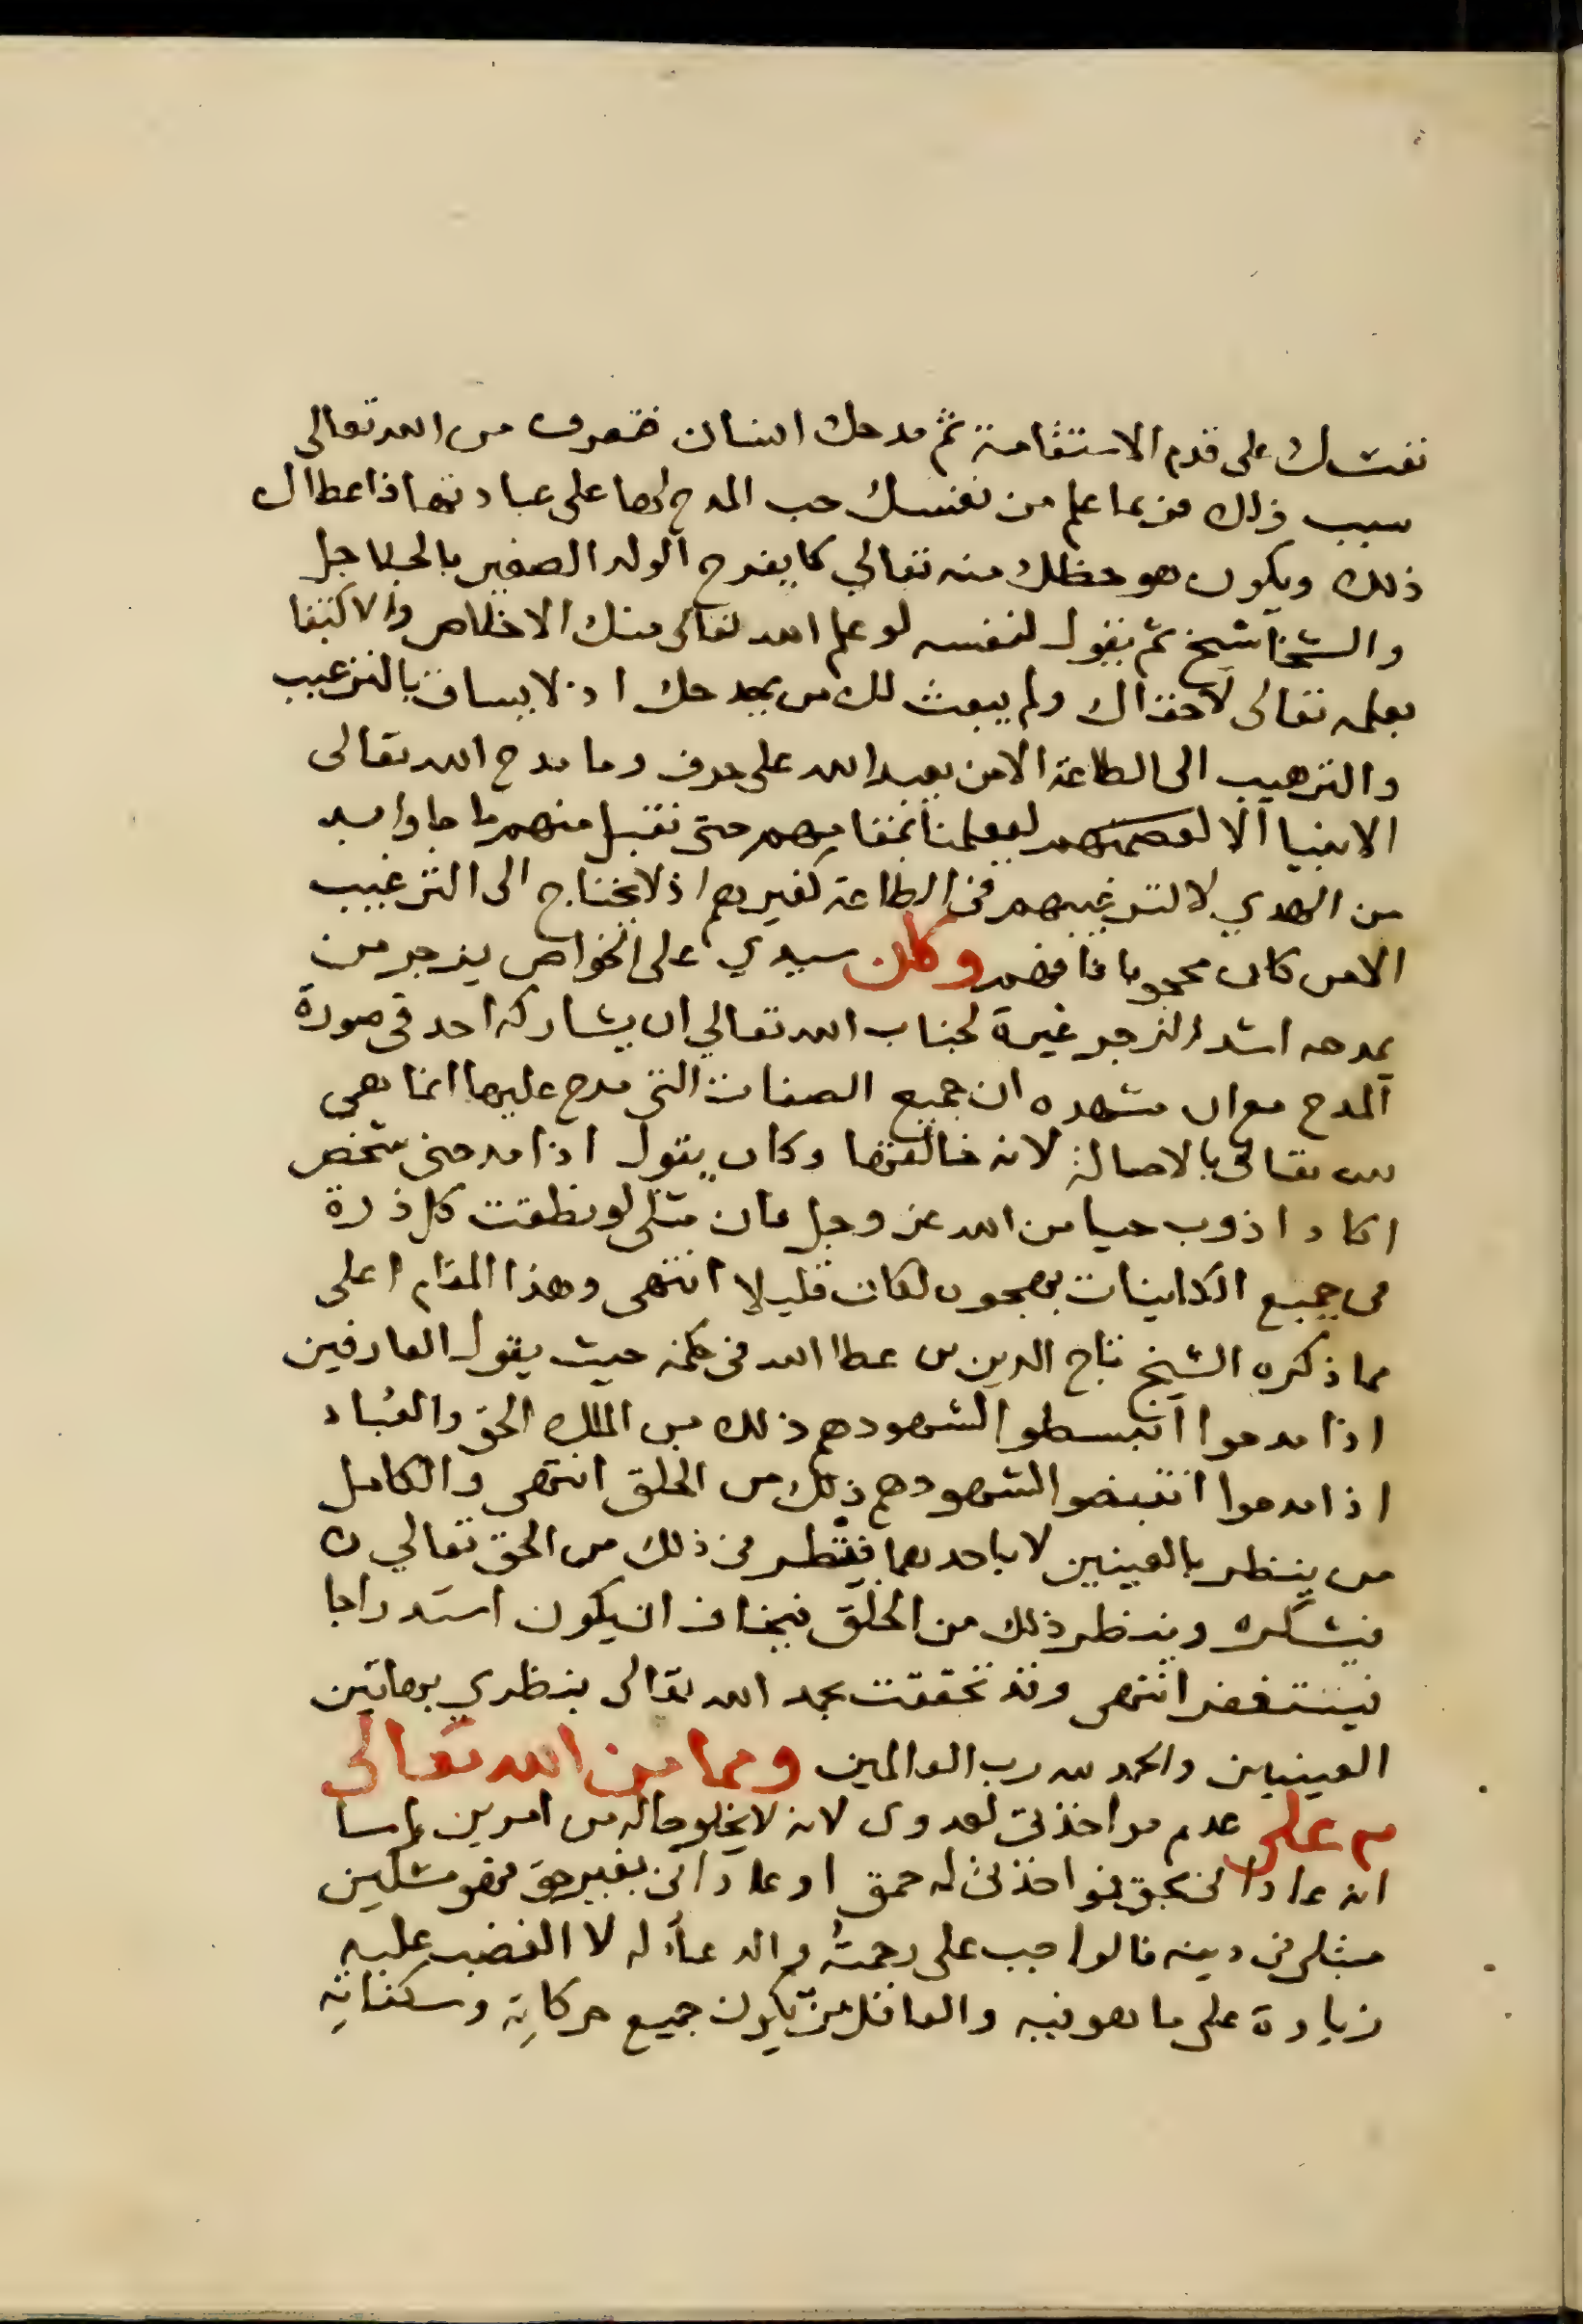 نفتشك على قدم الاستقامة ثم مدحك انسان فتعرف من الله تعالى
سبب ذلك فربما علم من نفسك حب المدح لها على عبادتها فاعطاك
ذلك ويكون هو حظك منه تعالى كما يفرح الولد الصغير بالجلاجل
والشخاشيخ ثم يقول لنفسه لو علم الله تعالى منك الاخلاص والاكتفا
بعلمه تعالى لاخفاك ولم يبعث لك من يمدحك اذ لا يساق بالترغيب
والترهيب الى الطاعة الا من يعبد الله على حرف وما مدح الله تعالى
الانبيا الا لعصمتهم ليعلمنا بمقامهم حتى نقبل منهم ما جاوا به
من الهدي لا لترغيبهم في الطاعة كغيرهم اذ لا يحتاج الى الترغيب
الا من كان محجوبا فافهم وكان سيدي على الخواص يزجر من
يمدحه اشد الزجر غيرة لجناب الله تعالي ان يشاركه احد في صورة
المدح مع ان مشهده ان جميع الصفات التي مدح عليها انما هي
لله تعالى بالاصالة لانه خالقها وكان يقول اذا مدحني شخص
اكاد اذوب حيا من الله عز وجل فان مثلى لو نطقت كل ذرة
في جميع الكاينات بهجوه لكان قليلا انتهى وهذا المقام اعلى
مما ذكره الشيخ تاج الدين بن عطا الله في حكمه حيث يقول العارفين
اذا مدحوا انبسطوا لشهودهم ذلك من الملك الحق والعُباد
اذا مدحوا انقبضوا لشهودهم ذلك من الخلق انتهى والكامل
من ينظر بالعينين لا باحدهما فينظر في ذلك من الحق تعالي
فيشكره وينظر ذلك من الخلق فيخاف ان يكون استدراجا
فيستغفر انتهى وقد تحققت بحمد الله تعالى بنظري بهاتين
العينين والحمد لله رب العالمين ومما من الله تعالى
به على عدم مواخذتي لعدوى لانه لا يخلو حاله من امرين اما
انه عاداني بحق فمواخذتي له حمق او عاداني بغير حق فهو مسكين
مبتلى في دينه فالواجب على رحمته والدعاء له لا الغضب عليه
زيادة على ما هو فيه والعاقل من يكون جميع حركاته وسكناته